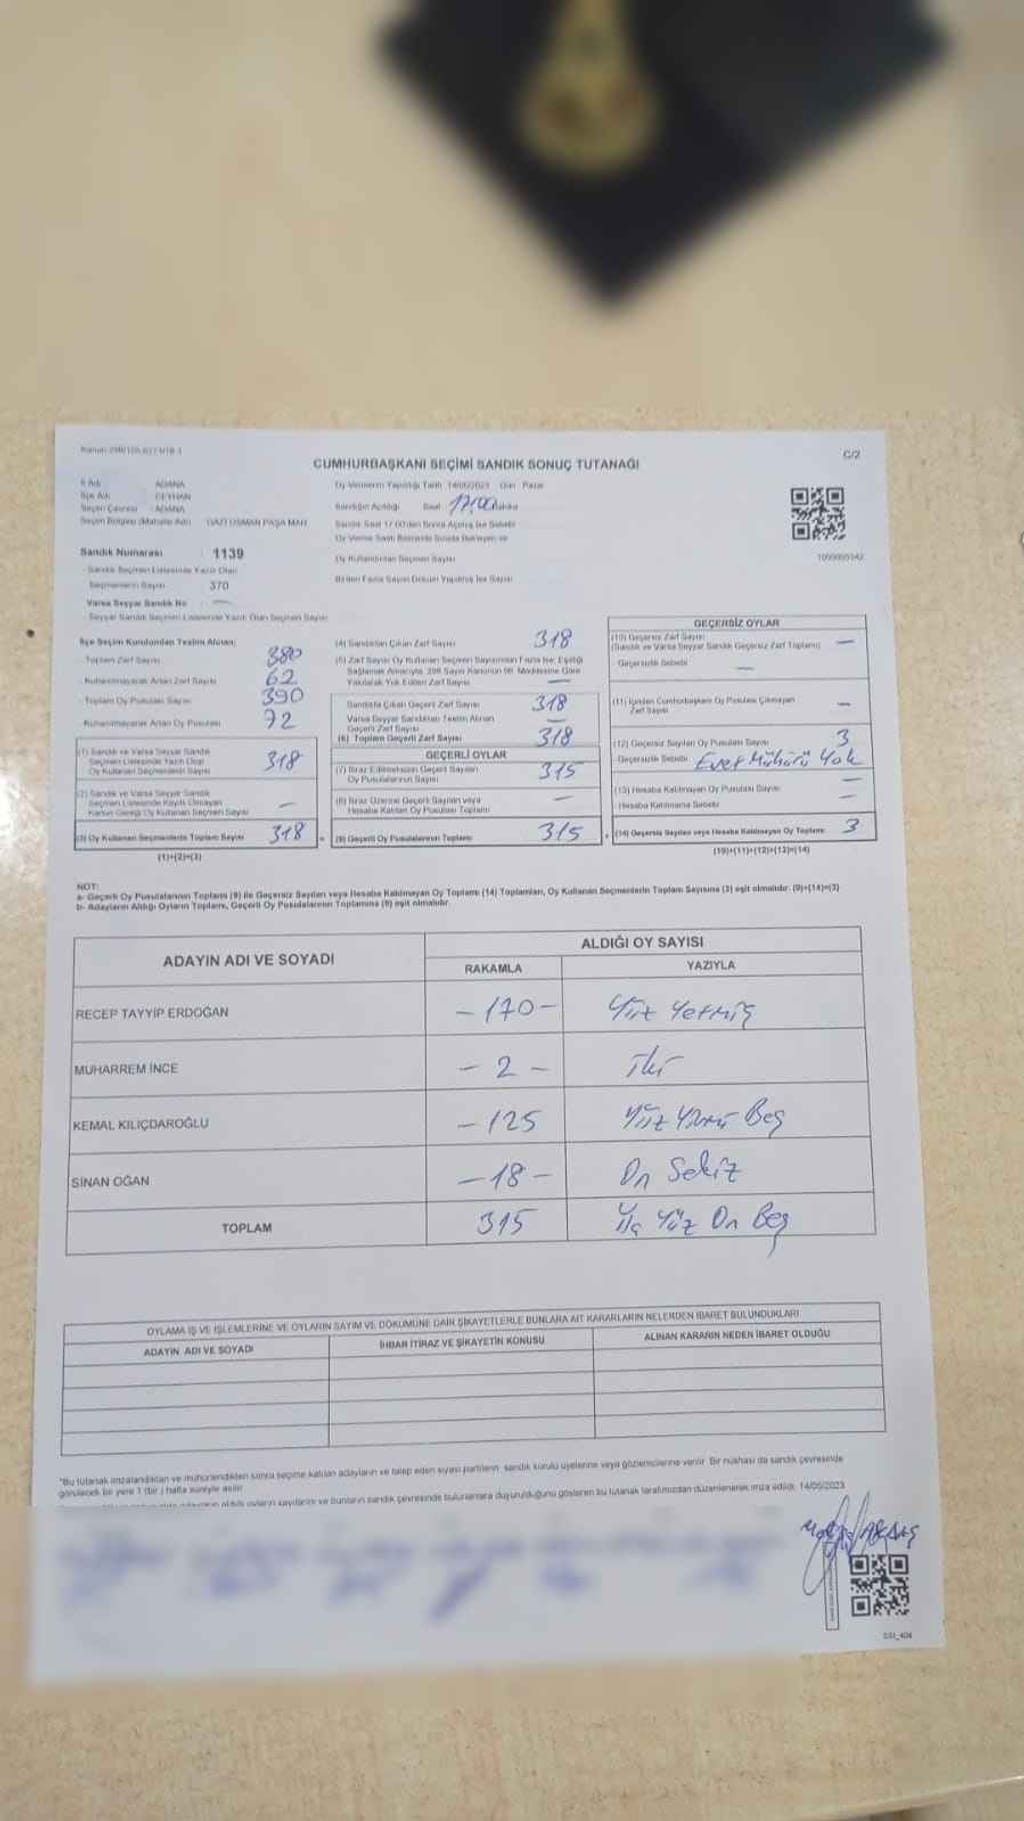 CUMHURBAŞKANI SEÇİMİ SANDIK SONUÇ TUTANAĞI
C/2
İl Adı ADANA
İlçe Adı CEYHAN
Seçim Çevresi ADANA
Seçim Bölgesi (Mahalle Adı) GAZİ OSMAN PAŞA MAH.
Sandık Numarası 1139
Sandık Seçmen Listesinde Yazılı Olan
Seçmenlerin Sayısı 370
Varsa Seyyar Sandık No —
Oy Vermenin Yapıldığı Tarih 14/05/2023 Gün Pazar
Sandığın Açıldığı Saat 17:00
Oy Kullandırılan Seçmen Sayısı
İlçe Seçim Kurulundan Teslim Alınan;
Toplam Zarf Sayısı 380
Kullanılmayarak Artan Zarf Sayısı 62
Toplam Oy Pusulası Sayısı 390
Kullanılmayarak Artan Oy Pusulası 72
(1) Sandık ve Varsa Seyyar Sandık
Seçmen Listesinde Yazılı Olup
Oy Kullanan Seçmenlerin Sayısı 318
(2) Sandık ve Varsa Seyyar Sandık
Seçmen Listesinde Kayıtlı Olmayan
Kanun Gereği Oy Kullanan Seçmen Sayısı —
(3) Oy Kullanan Seçmenlerin Toplam Sayısı 318
(1)+(2)=(3)
(4) Sandıktan Çıkan Zarf Sayısı 318
Sandıkta Çıkan Geçerli Zarf Sayısı 318
Varsa Seyyar Sandıktan Teslim Alınan
Geçerli Zarf Sayısı —
(6) Toplam Geçerli Zarf Sayısı 318
GEÇERLİ OYLAR
(7) İtiraz Edilmeksizin Geçerli Sayılan
Oy Pusulalarının Sayısı 315
(8) İtiraz Üzerine Geçerli Sayılan veya
Hesaba Katılan Oy Pusulası Toplamı —
(9) Geçerli Oy Pusulalarının Toplamı 315
GEÇERSİZ OYLAR
(10) Geçersiz Zarf Sayısı
(Sandık ve Varsa Seyyar Sandık Geçersiz Zarf Toplamı) —
Geçersizlik Sebebi —
(11) İçinden Cumhurbaşkanı Oy Pusulası Çıkmayan
Zarf Sayısı —
(12) Geçersiz Sayılan Oy Pusulası Sayısı 3
Geçersizlik Sebebi Evet Mühürü Yok
(13) Hesaba Katılmayan Oy Pusulası Sayısı —
Hesaba Katılmama Sebebi —
(14) Geçersiz Sayılan veya Hesaba Katılmayan Oy Toplamı 3
(10)+(11)+(12)+(13)=(14)
NOT:
a- Geçerli Oy Pusulalarının Toplamı (9) ile Geçersiz Sayılan veya Hesaba Katılmayan Oy Toplamı (14) Toplamları, Oy Kullanan Seçmenlerin Toplam Sayısına (3) eşit olmalıdır. (9)+(14)=(3)
b- Adayların Aldığı Oyların Toplamı, Geçerli Oy Pusulalarının Toplamına (9) eşit olmalıdır.
ADAYIN ADI VE SOYADI
ALDIĞI OY SAYISI
RAKAMLA YAZIYLA
RECEP TAYYİP ERDOĞAN -170- Yüz Yetmiş
MUHARREM İNCE - 2 - İki
KEMAL KILIÇDAROĞLU -125 Yüz Yirmi Beş
SİNAN OĞAN -18- On Sekiz
TOPLAM 315 Üç Yüz On Beş
OYLAMA İŞ VE İŞLEMLERİNE VE OYLARIN SAYIM VE DÖKÜMÜNE DAİR ŞİKAYETLERLE BUNLARA AİT KARARLARIN NELERDEN İBARET BULUNDUKLARI
ADAYIN ADI VE SOYADI İHBAR İTİRAZ VE ŞİKAYETİN KONUSU ALINAN KARARIN NEDEN İBARET OLDUĞU
*Bu tutanak imzalandıktan ve mühürlendikten sonra seçime katılan adayların ve talep eden siyasi partilerin sandık kurulu üyelerine veya gözlemcilerine verilir. Bir nüshası da sandık çevresinde
görülecek bir yere 1 (bir) hafta süreyle asılır.